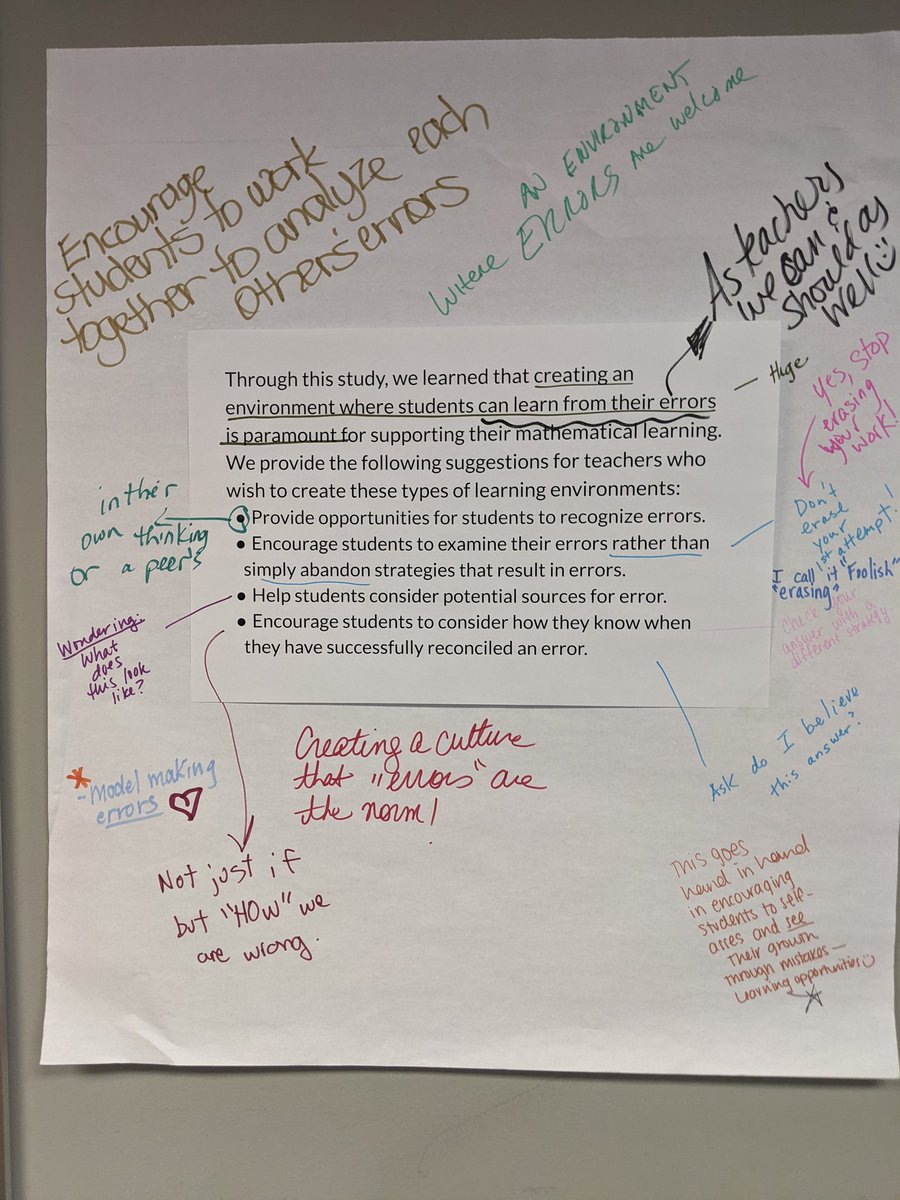 Encourage
students to work
together to analyze each
others errors
AN ENVIRONMENT
WHERE ERRORS ARE welcome
As teachers
we can &
should as
well
Through this study, we learned that creating an
environment where students can learn from their errors
is paramount for supporting their mathematical learning.
We provide the following suggestions for teachers who
wish to create these types of learning environments:
• Provide opportunities for students to recognize errors.
• Encourage students to examine their errors rather than
simply abandon strategies that result in errors.
• Help students consider potential sources for error.
• Encourage students to consider how they know when
they have successfully reconciled an error.
— Huge
Yes, stop
erasing
your
work!
in their
own thinking
or a peer's
Don't
erase
your
1st attempt!
I call it "Foolish"
"erasing"
Check your
answer with a
different strategy
Wondering:
What
does
this look
like?
Ask do I believe
this answer?
* - Model making
errors ♡
Creating a culture
that "errors" are
the norm!
Not just if
but "HOW" we
are wrong.
This goes
hand in hand
in encouraging
students to self-
asses and see
their growth
through mistakes —
learning opportunities